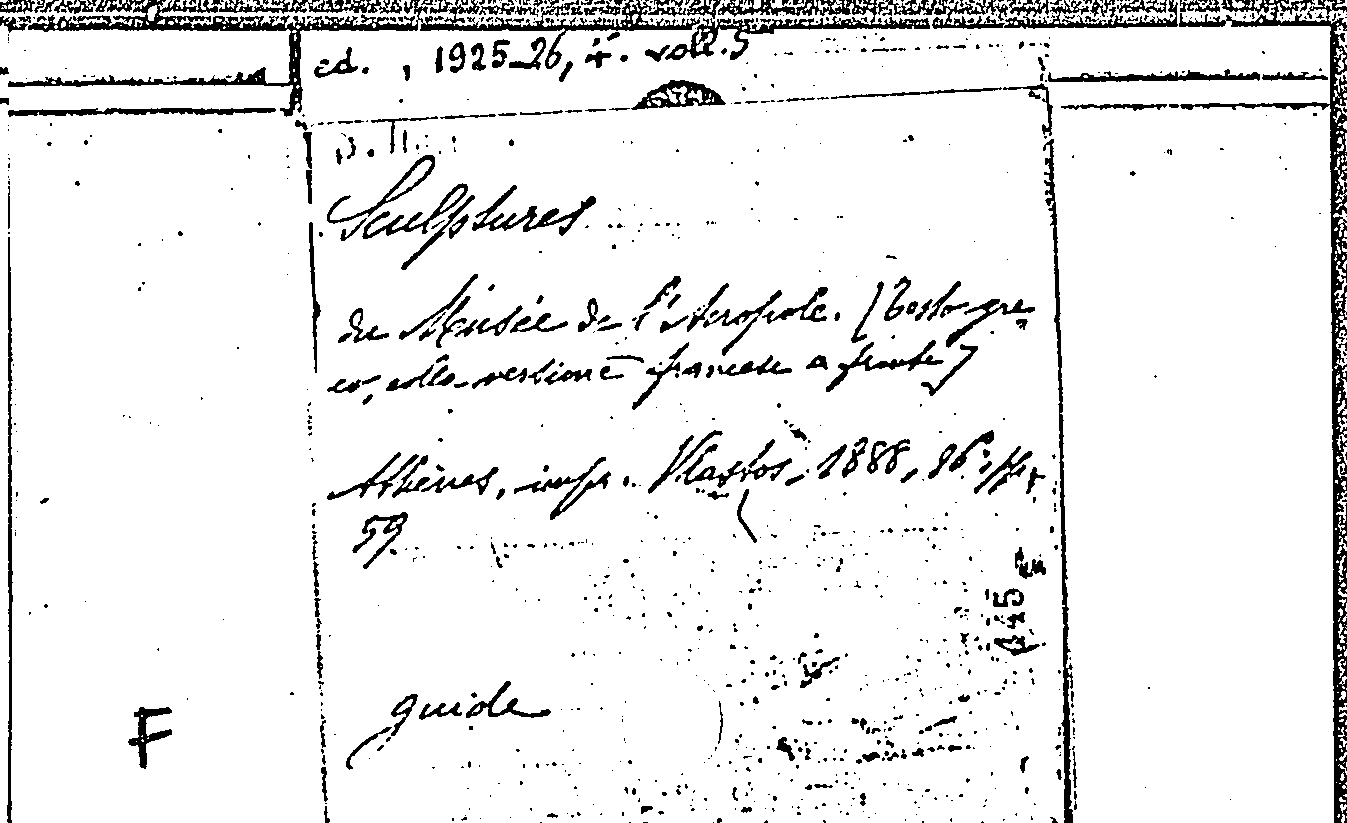 ed. , 1925-26, 4°. voll. 5
Sculptures
du Musée de l'Acropole. [Testo gre-
co, colla versione francese a fronte]
Athènes, impr. Vlastos, 1888, 86°, pp.
59.
445
guide
F